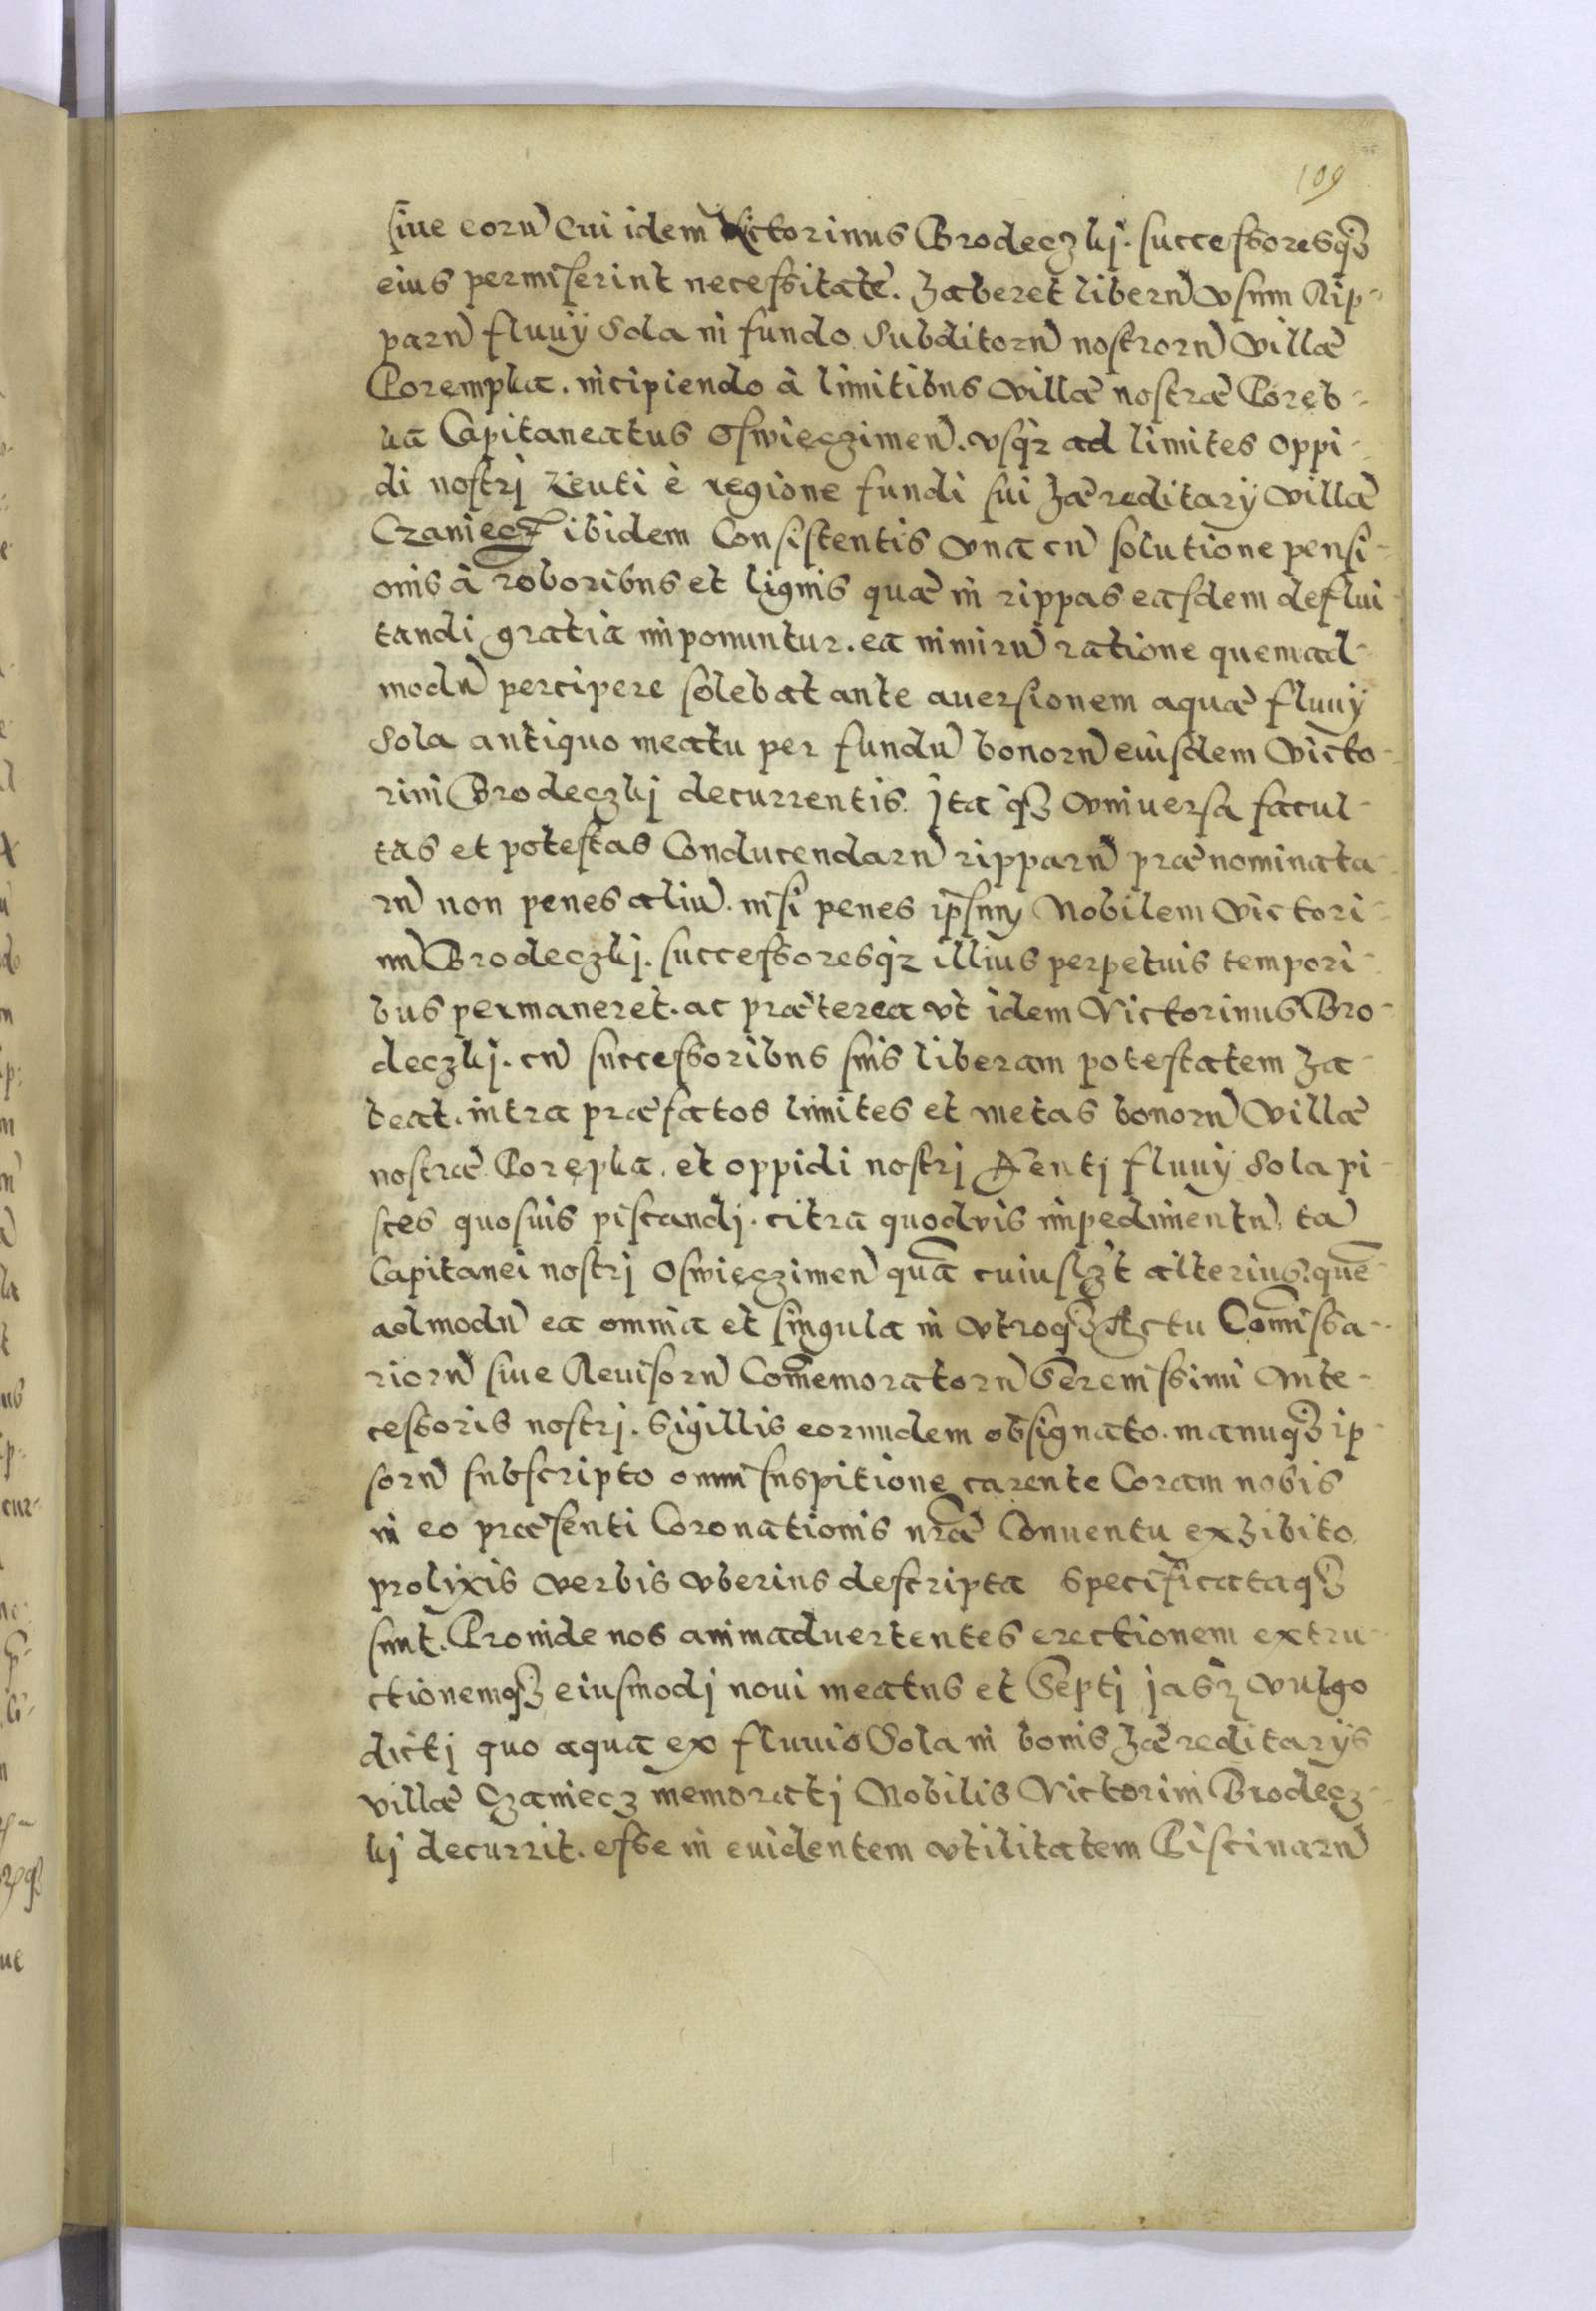 109
siue eorũ cui idem Victorinus Brodeczkj. successoresq́3
eius permiserint necessitatẽ. haberet liberũ vsum Rip-
parũ fluuÿ Sola in fundo Subditorũ nostrorũ villæ
Porempka. incipiendo à limitibus villæ nostræ Poręb-
ka Capitaneatus Oswięczimeñ. vsq́2 ad limites oppi-
di nostrj Kenti è regione fundi sui hæreditarÿ villæ
Czaniecz ibidem Consistentis vna cũ solutione pensi-
onis à roboribus et lignis quæ in rippas easdem deflui-
tandi gratia imponuntur. ea nimirũ ratione quemad-
modũ percipere solebat ante auersionem aquæ fluuÿ
Sola antiquo meatu per fundũ bonorũ eiusdem Victo-
rini Brodeczkj decurrentis. Jta q́3 vniuersa facul-
tas et potestas Conducendarũ ripparũ prænominata-
rũ non penes aliũ. nisi penes ip̃sum Nobilem Victori-
nũ Brodeczkj. successoresq́2 illius perpetuis tempori-
bus permaneret. ac præterea vt idem Victorinus Bro-
deczkj. cũ successoribus suis liberam potestatem ha-
beat. intra præfatos limites et metas bonorũ villæ
nostræ Porępka. et oppidi nostrj Kentj fluuÿ Sola pi-
sces quosuis piscandj. citra quoduis impedimentũ, tã
Capitanei nostrj Oswięczimeñ quã cuiusl3t alterius, quẽ-
admodũ ea omnia et singula in vtroq́3 Actu Com̃issa-
riorũ siue Reuisorũ Com̃emoratorũ Serenissimi Ante-
cessoris nostrj. Sigillis eorundem obsignato. manuq́3 ip-
sorũ subscripto omni suspitione carente Coram nobis
in eo præsenti Coronationis nr̃æ Conuentu exhibito
prolixis verbis vberius descripta specificataq́3
sunt. Proinde nos animaduertentes erectionem extru-
ctionemq́3 eiusmodj noui meatus et Septj jas3 vulgo
dictj quo aqua ex fluuio Sola in bonis hæreditarÿs
villæ Czaniecz memoratj Nobilis Victorini Brodecz-
kj decurrit. esse in euidentem vtilitatem Piscinarũ